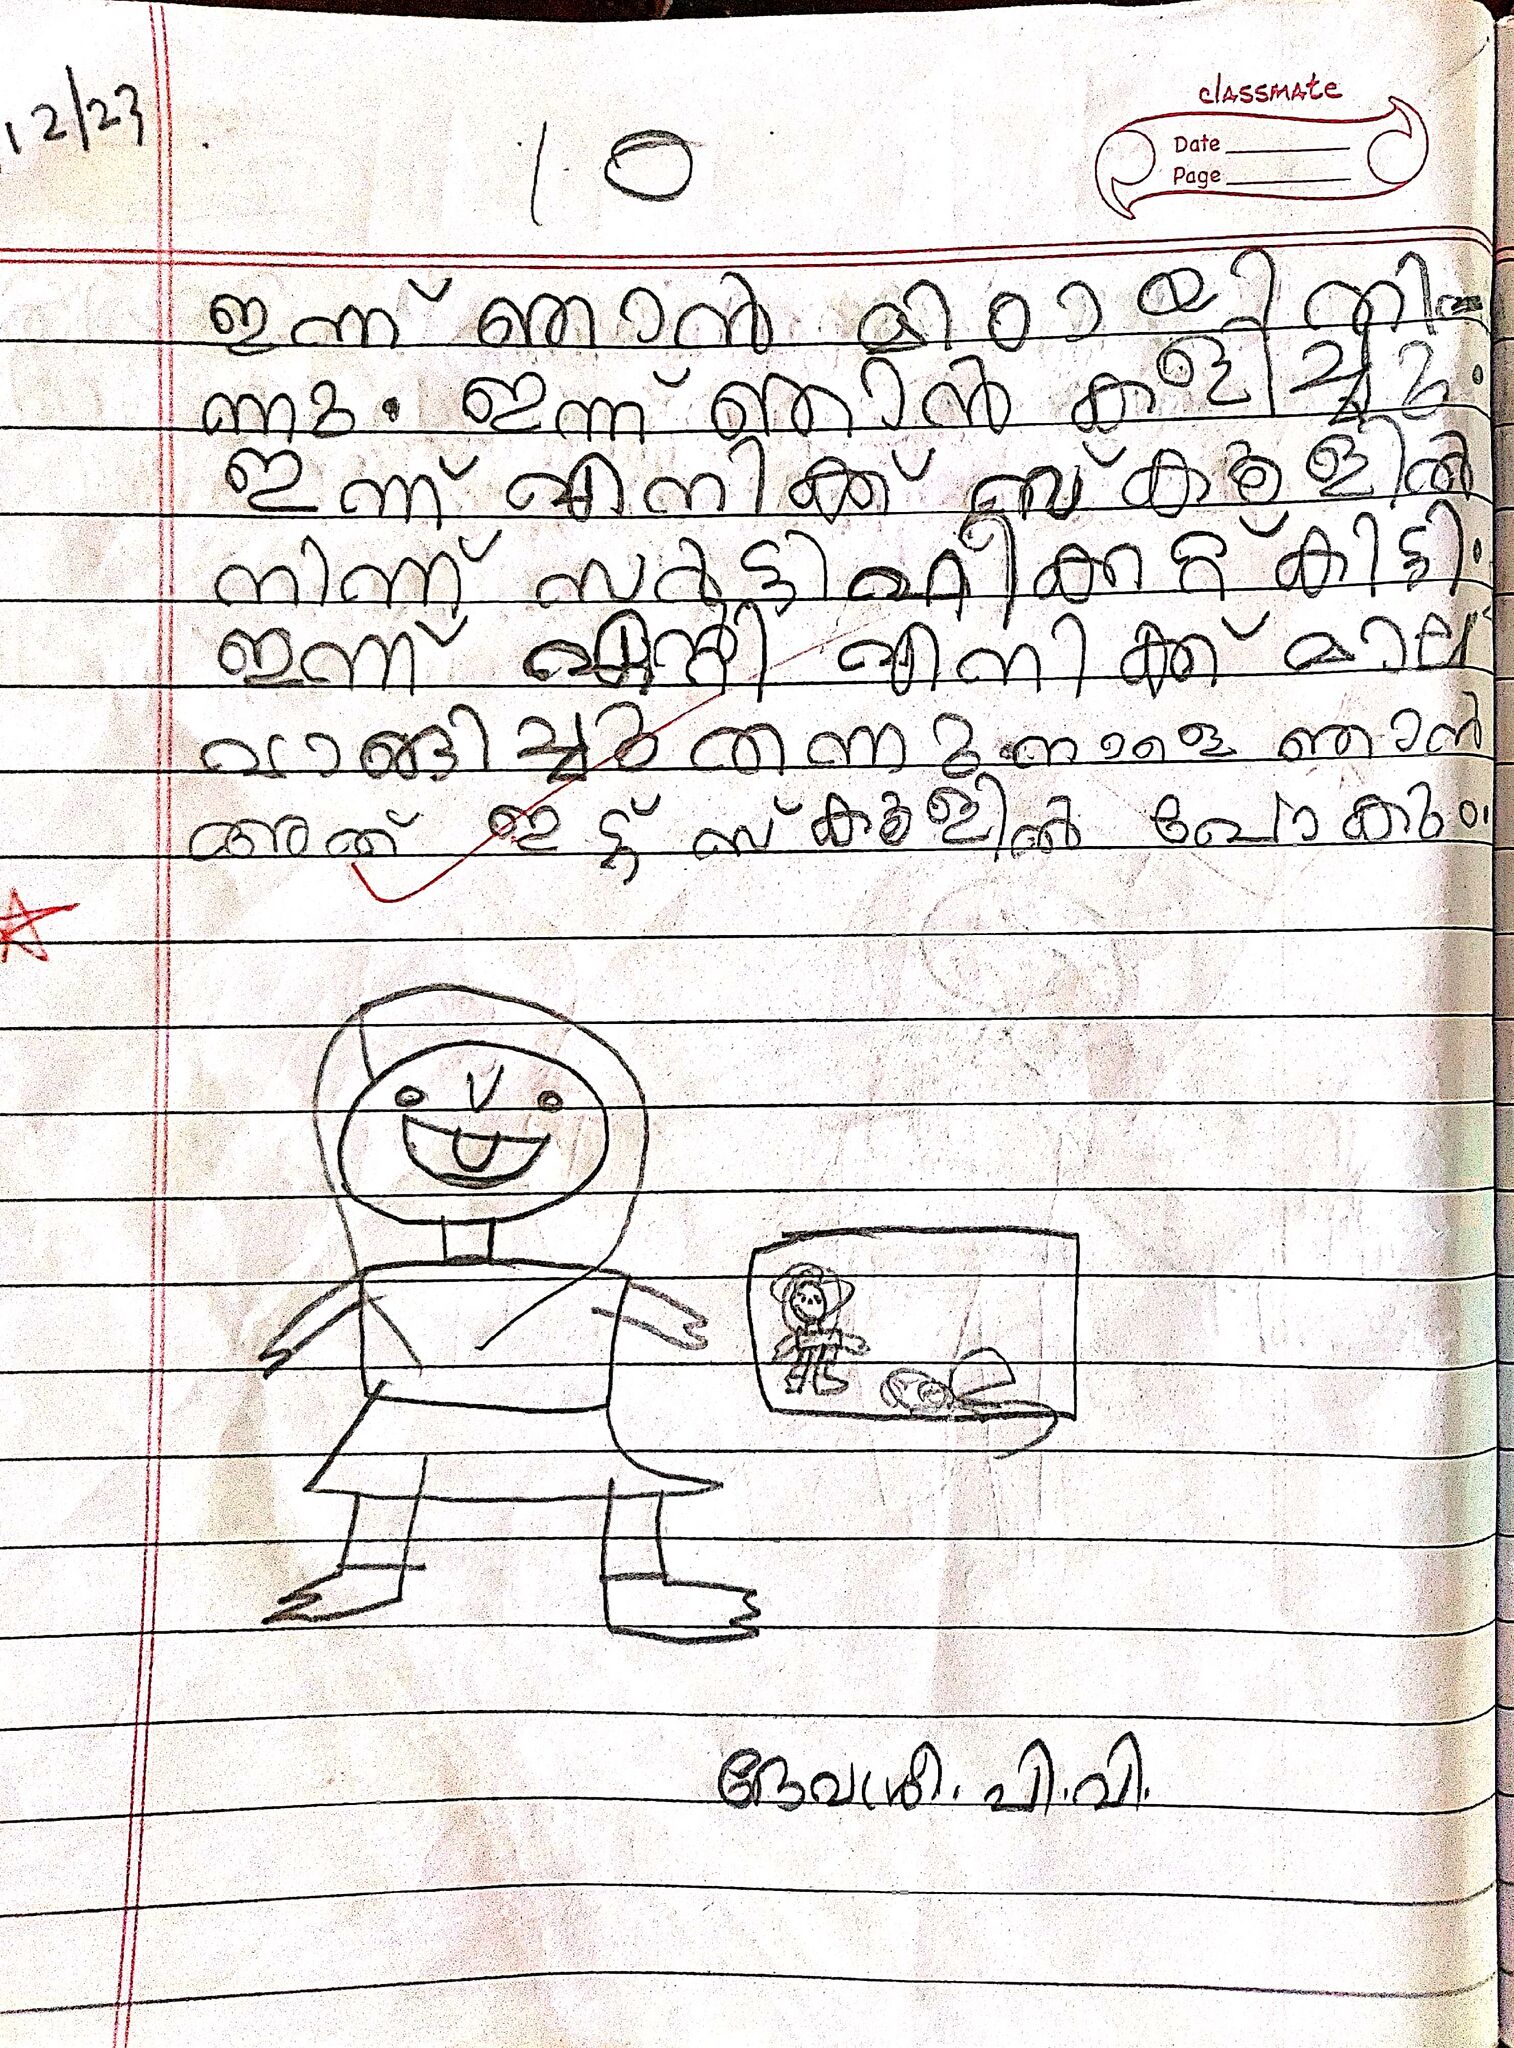 12/23
classmate
Date
Page
10
ഇന്ന് ഞാൻ മിഠായി തി-
ന്നു. ഇന്ന് ഞാൻ കളിച്ചു.
ഇന്ന് എനിക്ക് സ്കൂളിൽ
നിന്ന് സർട്ടിഫീക്കറ്റ് കിട്ടി.
ഇന്ന് എനിക്ക് മാല
വാങ്ങിച്ചു തന്നു. നാളെ ഞാൻ
അത് ഇട്ട് സ്കൂളിൽ പോകും.
ദേവശ്രീ. പി. വി.